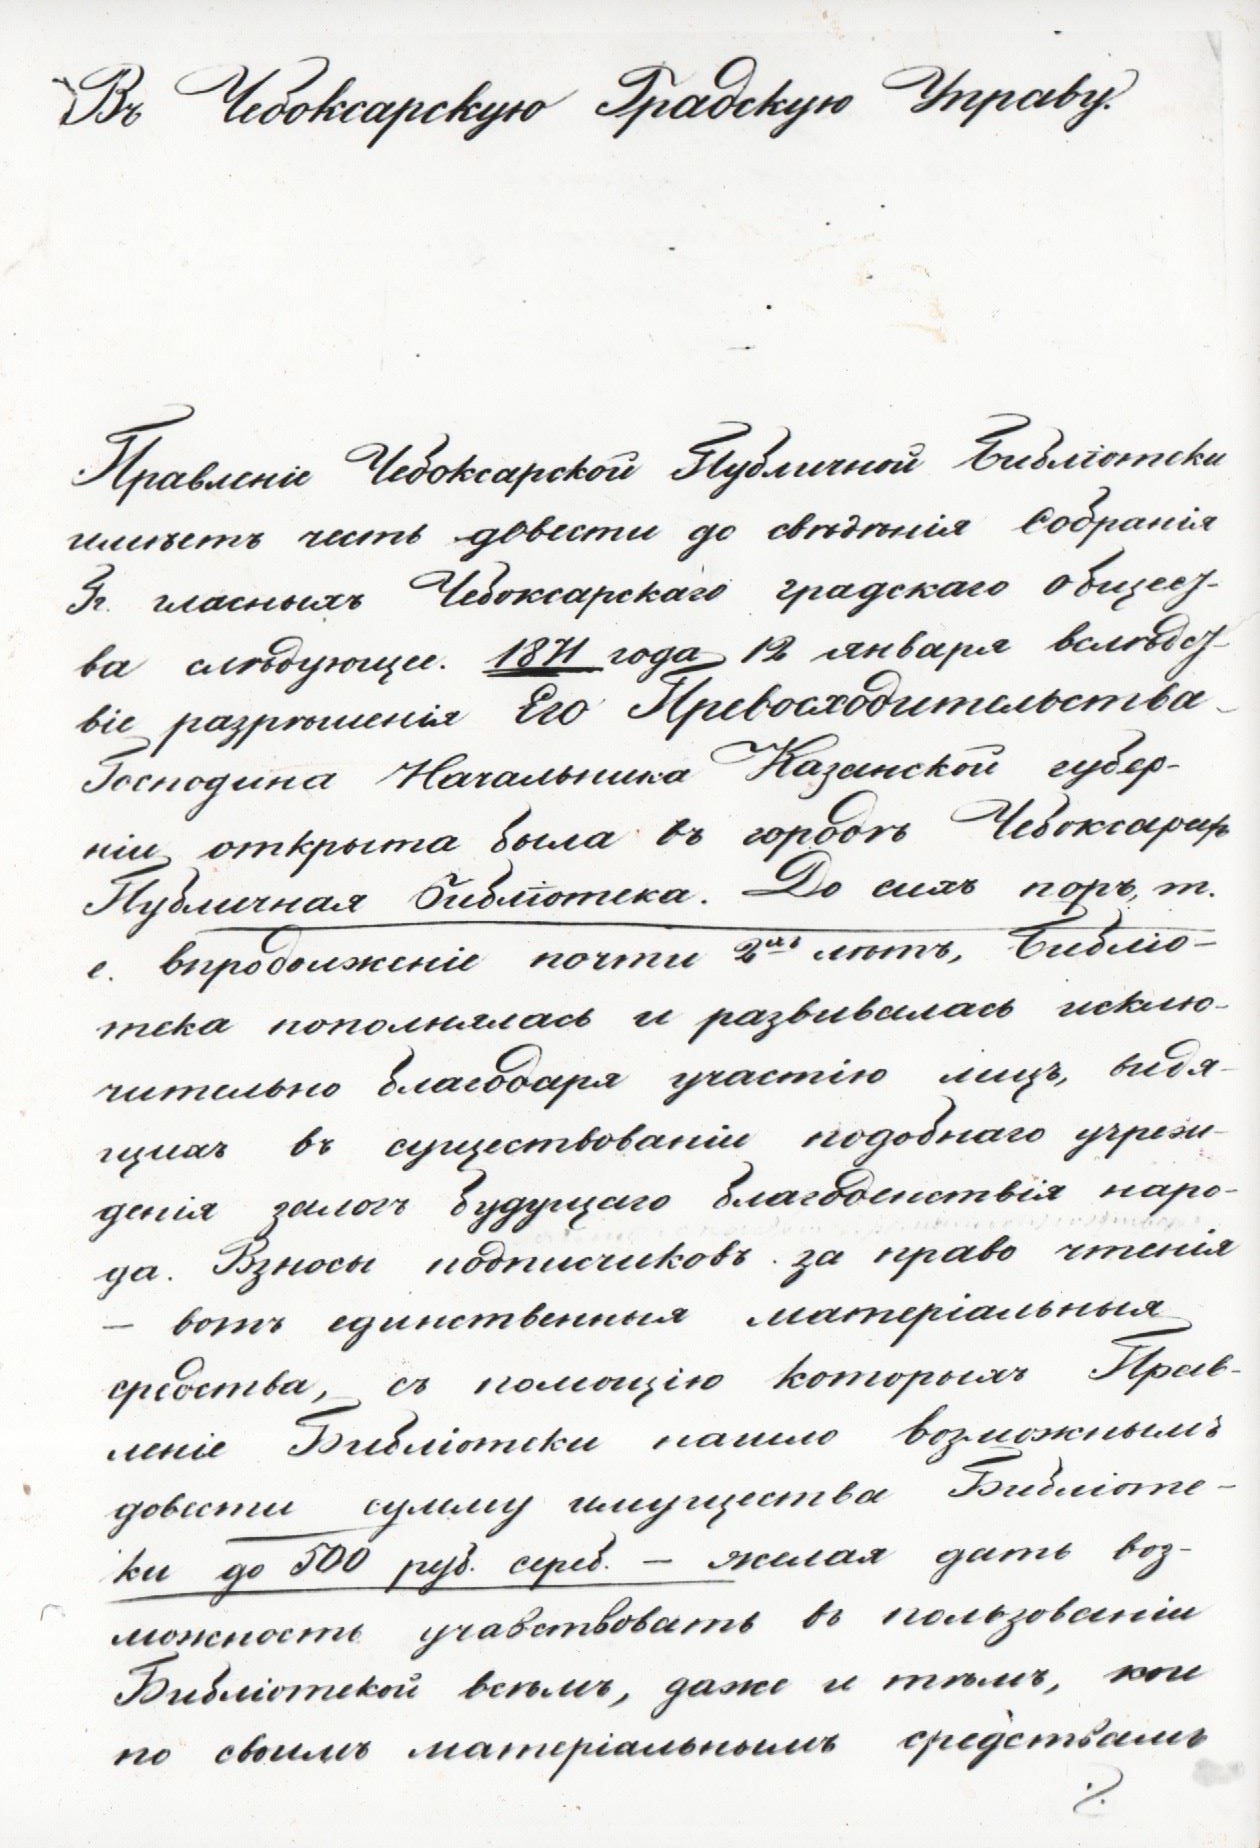 Въ Чебоксарскую Градскую Управу.
Правленіе Чебоксарской Публичной Библіотеки
имѣетъ честь довести до свѣдѣнія Собранія
Гг. гласныхъ Чебоксарскаго градскаго общест-
ва слѣдующее. 1871 года 12 января вслѣдст-
віе разрѣшенія Его Превосходительства
Господина Начальника Казанской губер-
ніи открыта была въ городѣ Чебоксарахъ
Публичная библіотека. До сихъ поръ, т.
е. впродолженіе почти 2хъ лѣтъ, Библіо-
тека пополнялась и развивалась исклю-
чительно благодаря участію лицъ, видя-
щихъ въ существованіи подобнаго учреж-
денія залогъ будущаго благоденствія наро-
да. Взносы подписчиковъ за право чтенія
— вотъ единственныя матеріальныя
средства, съ помощію которыхъ Прав-
леніе Библіотеки нашло возможнымъ
довести сумму имущества Библіоте-
ки до 500 руб. сереб. — желая дать воз-
можность учавствовать въ пользованіи
Библіотекой всѣмъ, даже и тѣмъ, кои
по своимъ матеріальнымъ средствамъ
./.